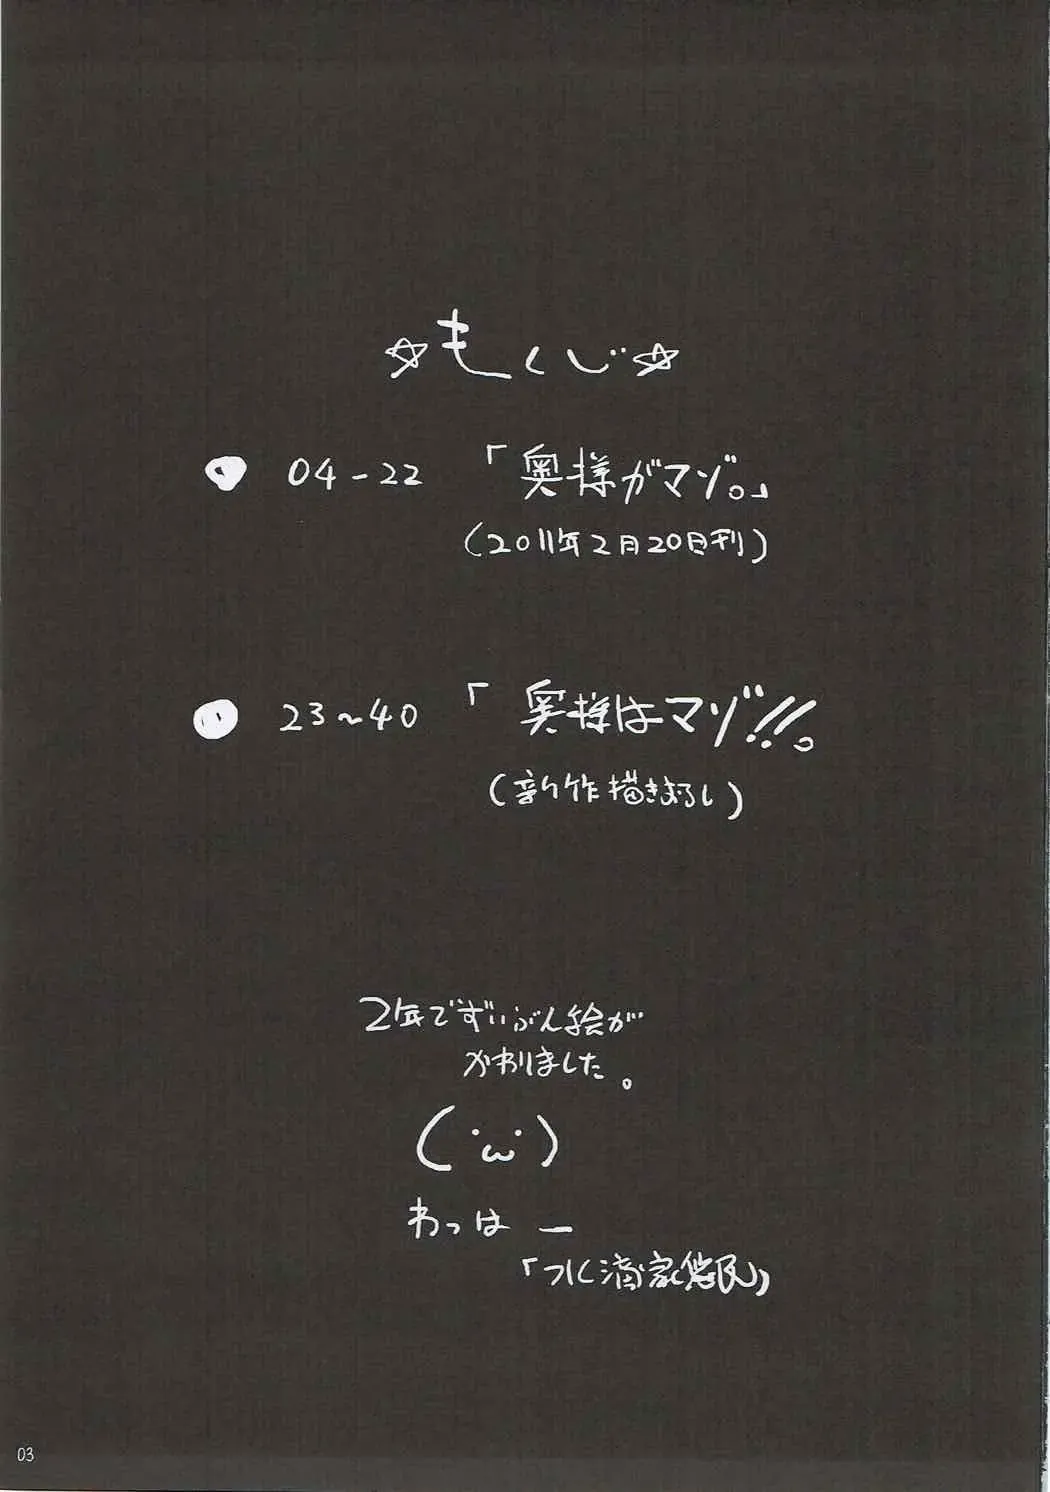 ☆もくじ☆
04-22 「奥様がマゾ。」
(2011年2月20日刊)
23~40 「奥様はマゾ!!。
(新作描きおろし)
2年でずいぶん絵が
かわりました。
(・ω・)
わっはー
03